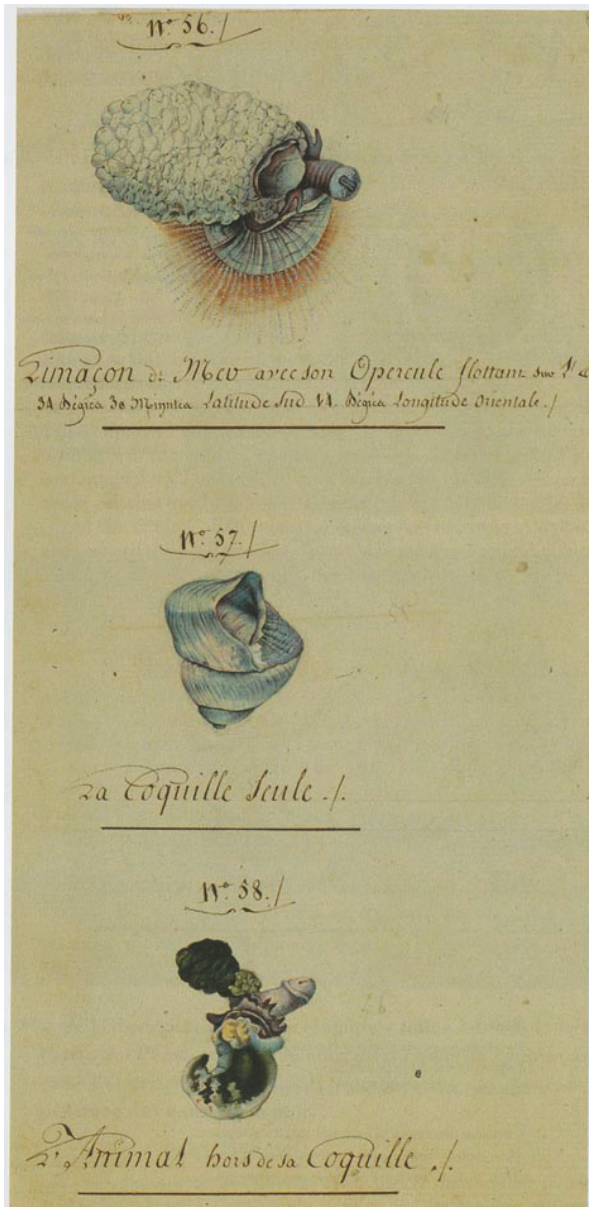 N.º 56./
Limaçon de Mer avec son Opercule flottant sur l'
34 Dégrés 30 Minutes Latitude Sud 11. Dégrés Longitude Orientale./
N.º 57./
La Coquille Seule./.
N.º 58./
L'Animal hors de sa Coquille./.